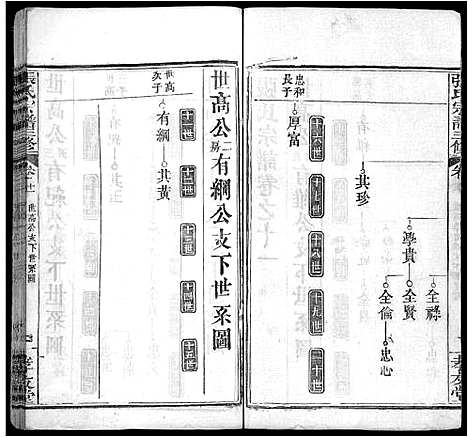 張氏宗譜三修
卷
忠和
長子
厚富
其珍
學貴
全賢
全祿
全倫
忠心
十六世
十七世
十八世
十九世
二十世
孝友堂
世高公二房有綱公支下世系圖
十一世
十二世
十三世
十四世
十五世
世高
次子
有綱
其黃
張氏宗譜三修
卷之十一
世高公支下世系圖
孝友堂